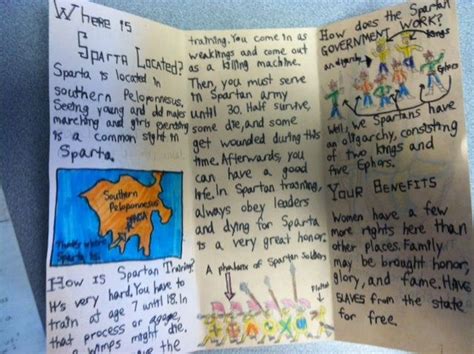 Where is
Sparta Located?
Sparta is located in
southern Peloponnesus,
Seeing young and old males
marching and girls
is a common sight in
Sparta.
Southern
Peloponnesus
SPARTA
Sparta is.
How is Spartan Training?
It's very hard. You have to
train at age 7 until 18. In
that process or agoge,
wimps might die.
training. You come in as
weaklings and come out
as a killing machine.
Then, you must serve
in Spartan army
until 30. Half survive,
some die, and some
get wounded during this
time. Afterwards, you
can have a good
life. In Spartan training,
always obey leaders
and dying for Sparta
is a very great honor.
A phalanx of Spartan Soldiers
How does the Spartan
GOVERNMENT WORK?
an oligarchy
kings
Ephors
Well, we Spartans have
an oligarchy, consisting
of two kings and
five Ephors.
YOUR BENEFITS
Women have a few
more rights here than
other places. Family
may be brought honor
glory, and fame. HAVE
SLAVES from the state
for free.